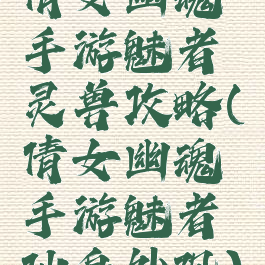 倩女幽魂
手游魅者
灵兽攻略(
倩女幽魂
手游魅者